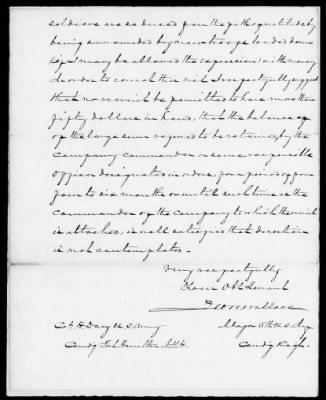 soldiers are seduced from the path of duty by
being surrounded by
may be allowed the expression with money
In order to correct this evil I respectfully suggest
that no recruit be permitted to have more than
fifty dollars in hand, that the balance
of the large sum be retained, by the
company commander or some responsible
officer designated in orders, for a period of from
four to six months or until such time as the
commander of the company to which the recruit
is attached, is well satisfied that desertion
is not contemplated.
Very respectfully
Your Obt Servant
Wallace
Major 6th U.S.
Comdg
Army
Comdg Fort Hamilton N.Y.H.